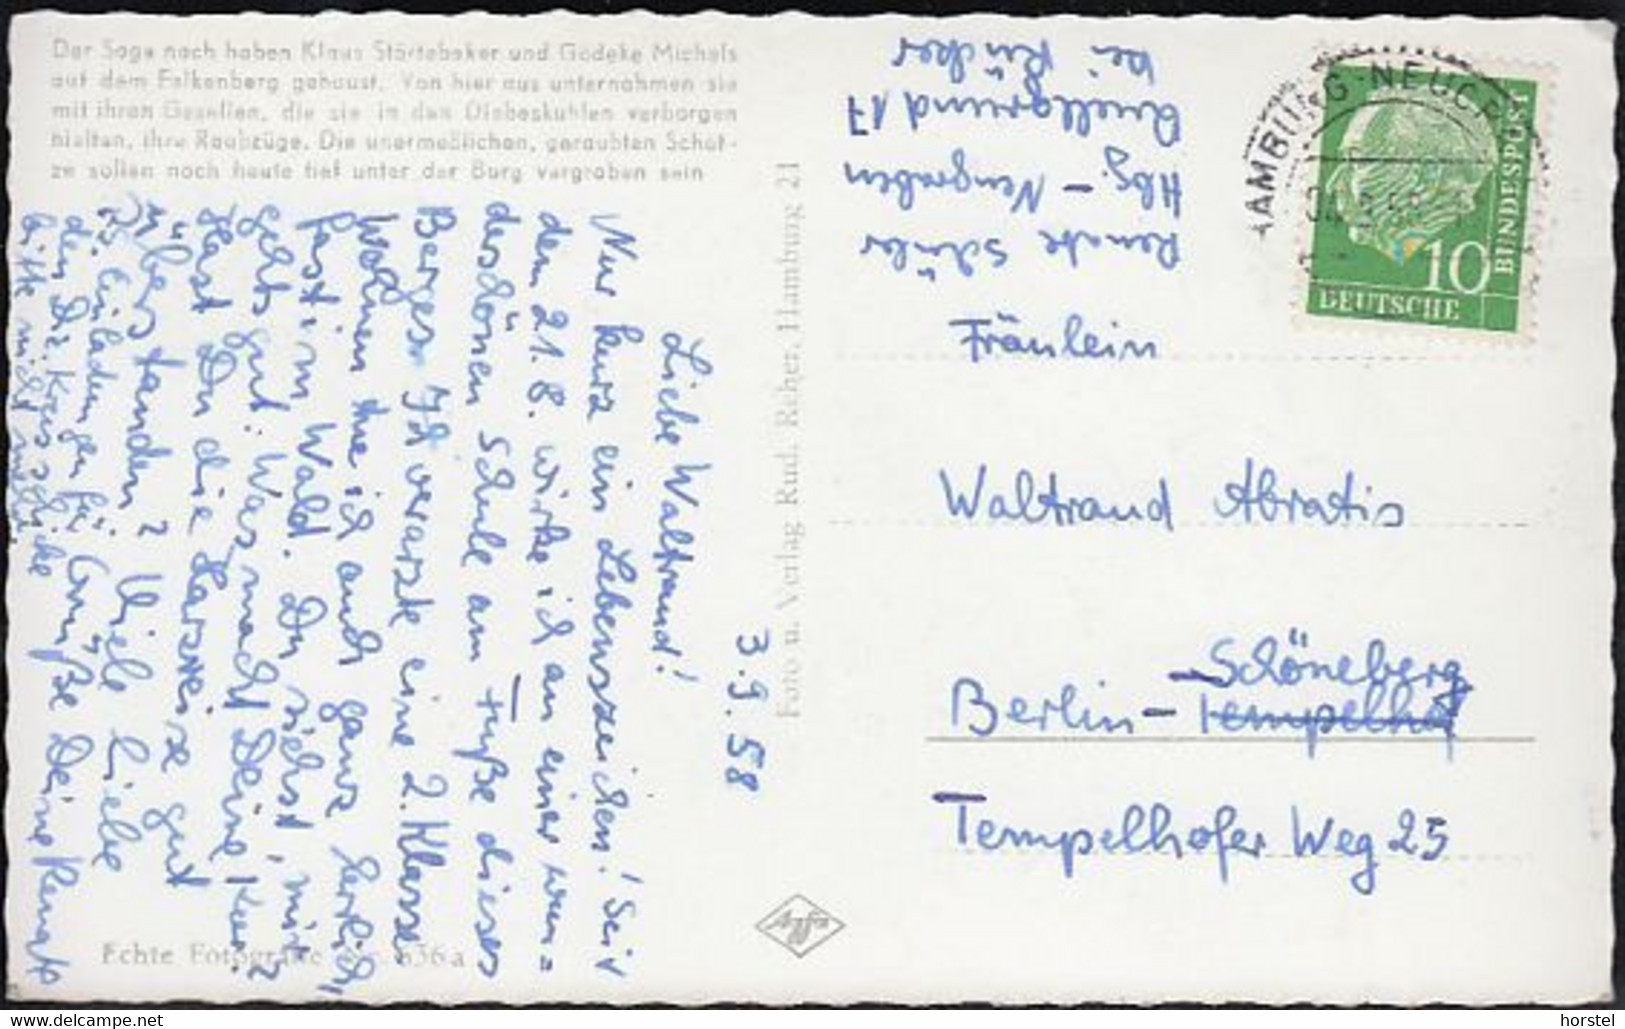 Der Sage nach haben Klaus Störtebeker und Gödeke Michels
auf dem Falkenberg gehaust. Von hier aus unternahmen sie
mit ihren Gesellen, die sie in den Diebeskuhlen verborgen
hielten, ihre Raubzüge. Die unermeßlichen, geraubten Schät-
ze sollen noch heute tief unter der Burg vergraben sein
3.9.58
Liebe Waltraud!
Nur kurz ein Lebenszeichen! Seit
dem 21.8. wirke ich an einer wun=
derschönen Schule am Fuße dieses
Berges. Ich verarzte eine 2. Klasse.
Wohnen tue ich auch ganz herrlich,
fast im Wald. Du siehst, mir
geht's gut! Was macht Deine Kur?
Hast Du die Harzreise gut
überstanden? Viele liebe
Grüße Deine Renate
Die Einladungen für
den Die. Kreis schicke
bitte nicht mehr.
Foto u. Verlag Rud. Reher, Hamburg 21
Echte Fotografie 636a
Agfa
Renate Schüler
Hbg. - Neugraben
Quellgrund 17
bei Rücker
HAMBURG-NEUGR
DEUTSCHE
BUNDESPOST
10
Fräulein
Waltraud Abratis
Berlin - Tempelhof
- Schöneberg
Tempelhofer Weg 25
horstel
www.delcampe.net